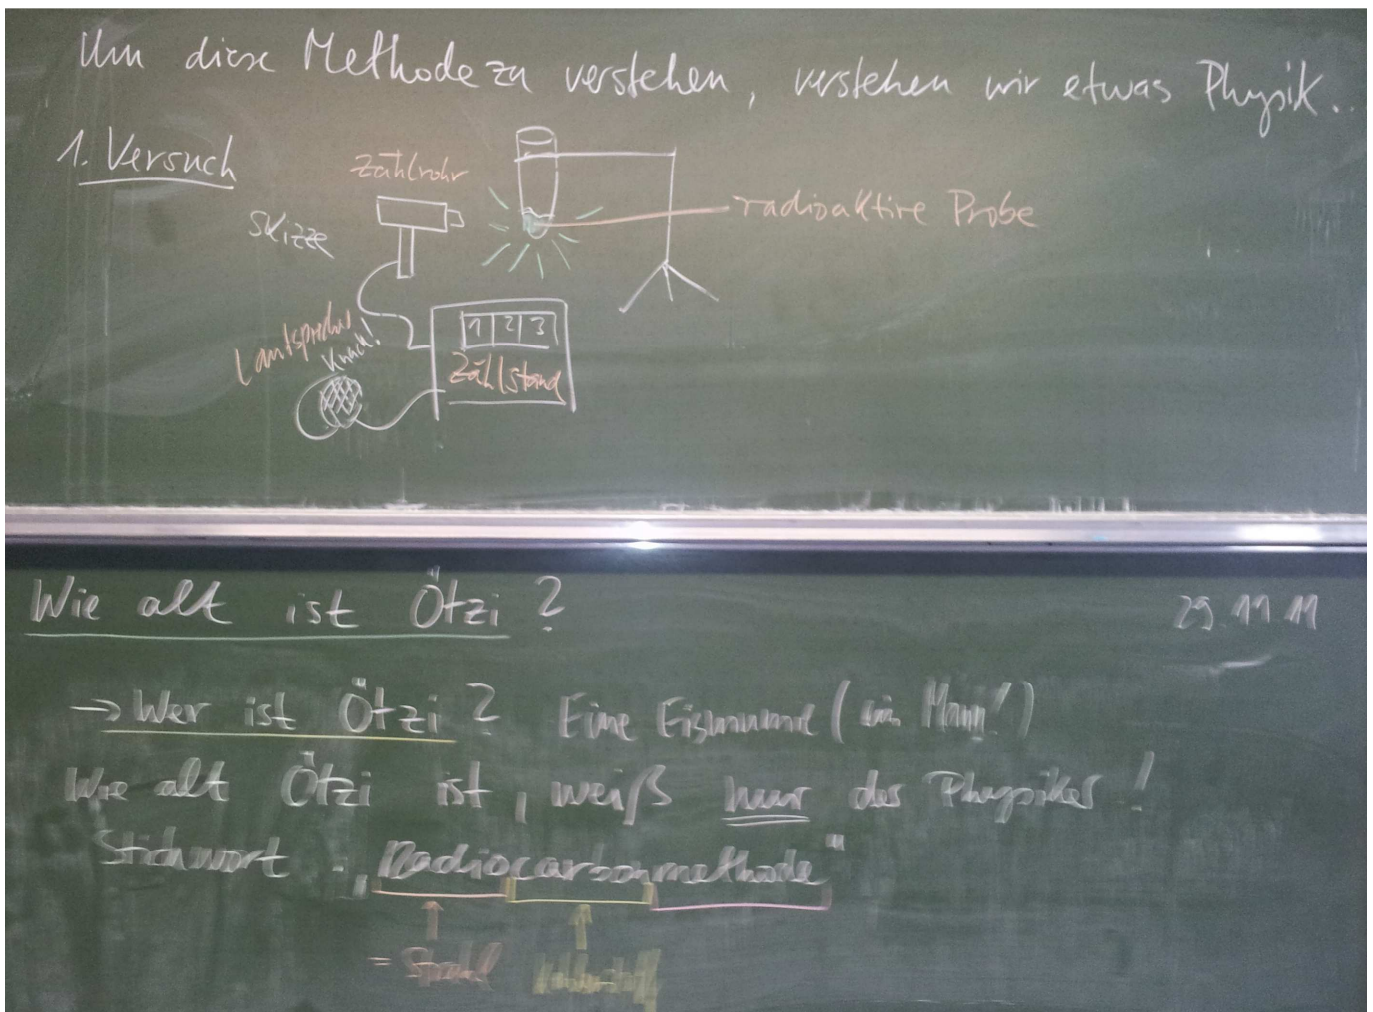 Um diese Methode zu verstehen, verstehen wir etwas Physik..
1. Versuch
Zählrohr
Skizze
radioaktive Probe
Lautsprecher
Knack!
1 2 3
Zählstand
Wie alt ist Ötzi?
29.11.11
→ Wer ist Ötzi? Eine Eismumie (ein Mann!)
Wie alt Ötzi ist, weiß nur der Physiker!
Stichwort: „Radiocarbonmethode"
= Strahl
Kohlenstoff